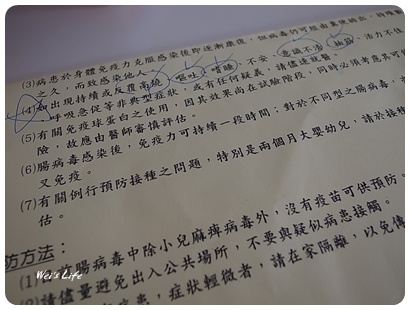 (3)病患於身體免疫力克服感染後即逐漸康復,但病毒仍可經由糞便排出,持續數
之久,而致感染他人
(4)如出現持續或反覆高燒、嘔吐、嗜睡、不安、意識不清、抽筋、活力不佳、
呼吸急促等非典型症狀,或有任何疑義,請儘速就醫。
(5)有關免疫球蛋白之使用,因其效果尚在試驗階段,同時必須考慮其可
險,故應由醫師審慎評估。
(6)腸病毒感染後,免疫力可持續一段時間;對於不同型之腸病毒,
叉免疫。
(7)有關例行預防接種之問題,特別是兩個月大嬰幼兒,請於接種
估。
防方法:
(1)腸病毒中除小兒麻痺病毒外,沒有疫苗可供預防。
請儘量避免出入公共場所,不要與疑似病患接觸。
病患,症狀輕微者,請在家隔離,以免傳
Wei's Life